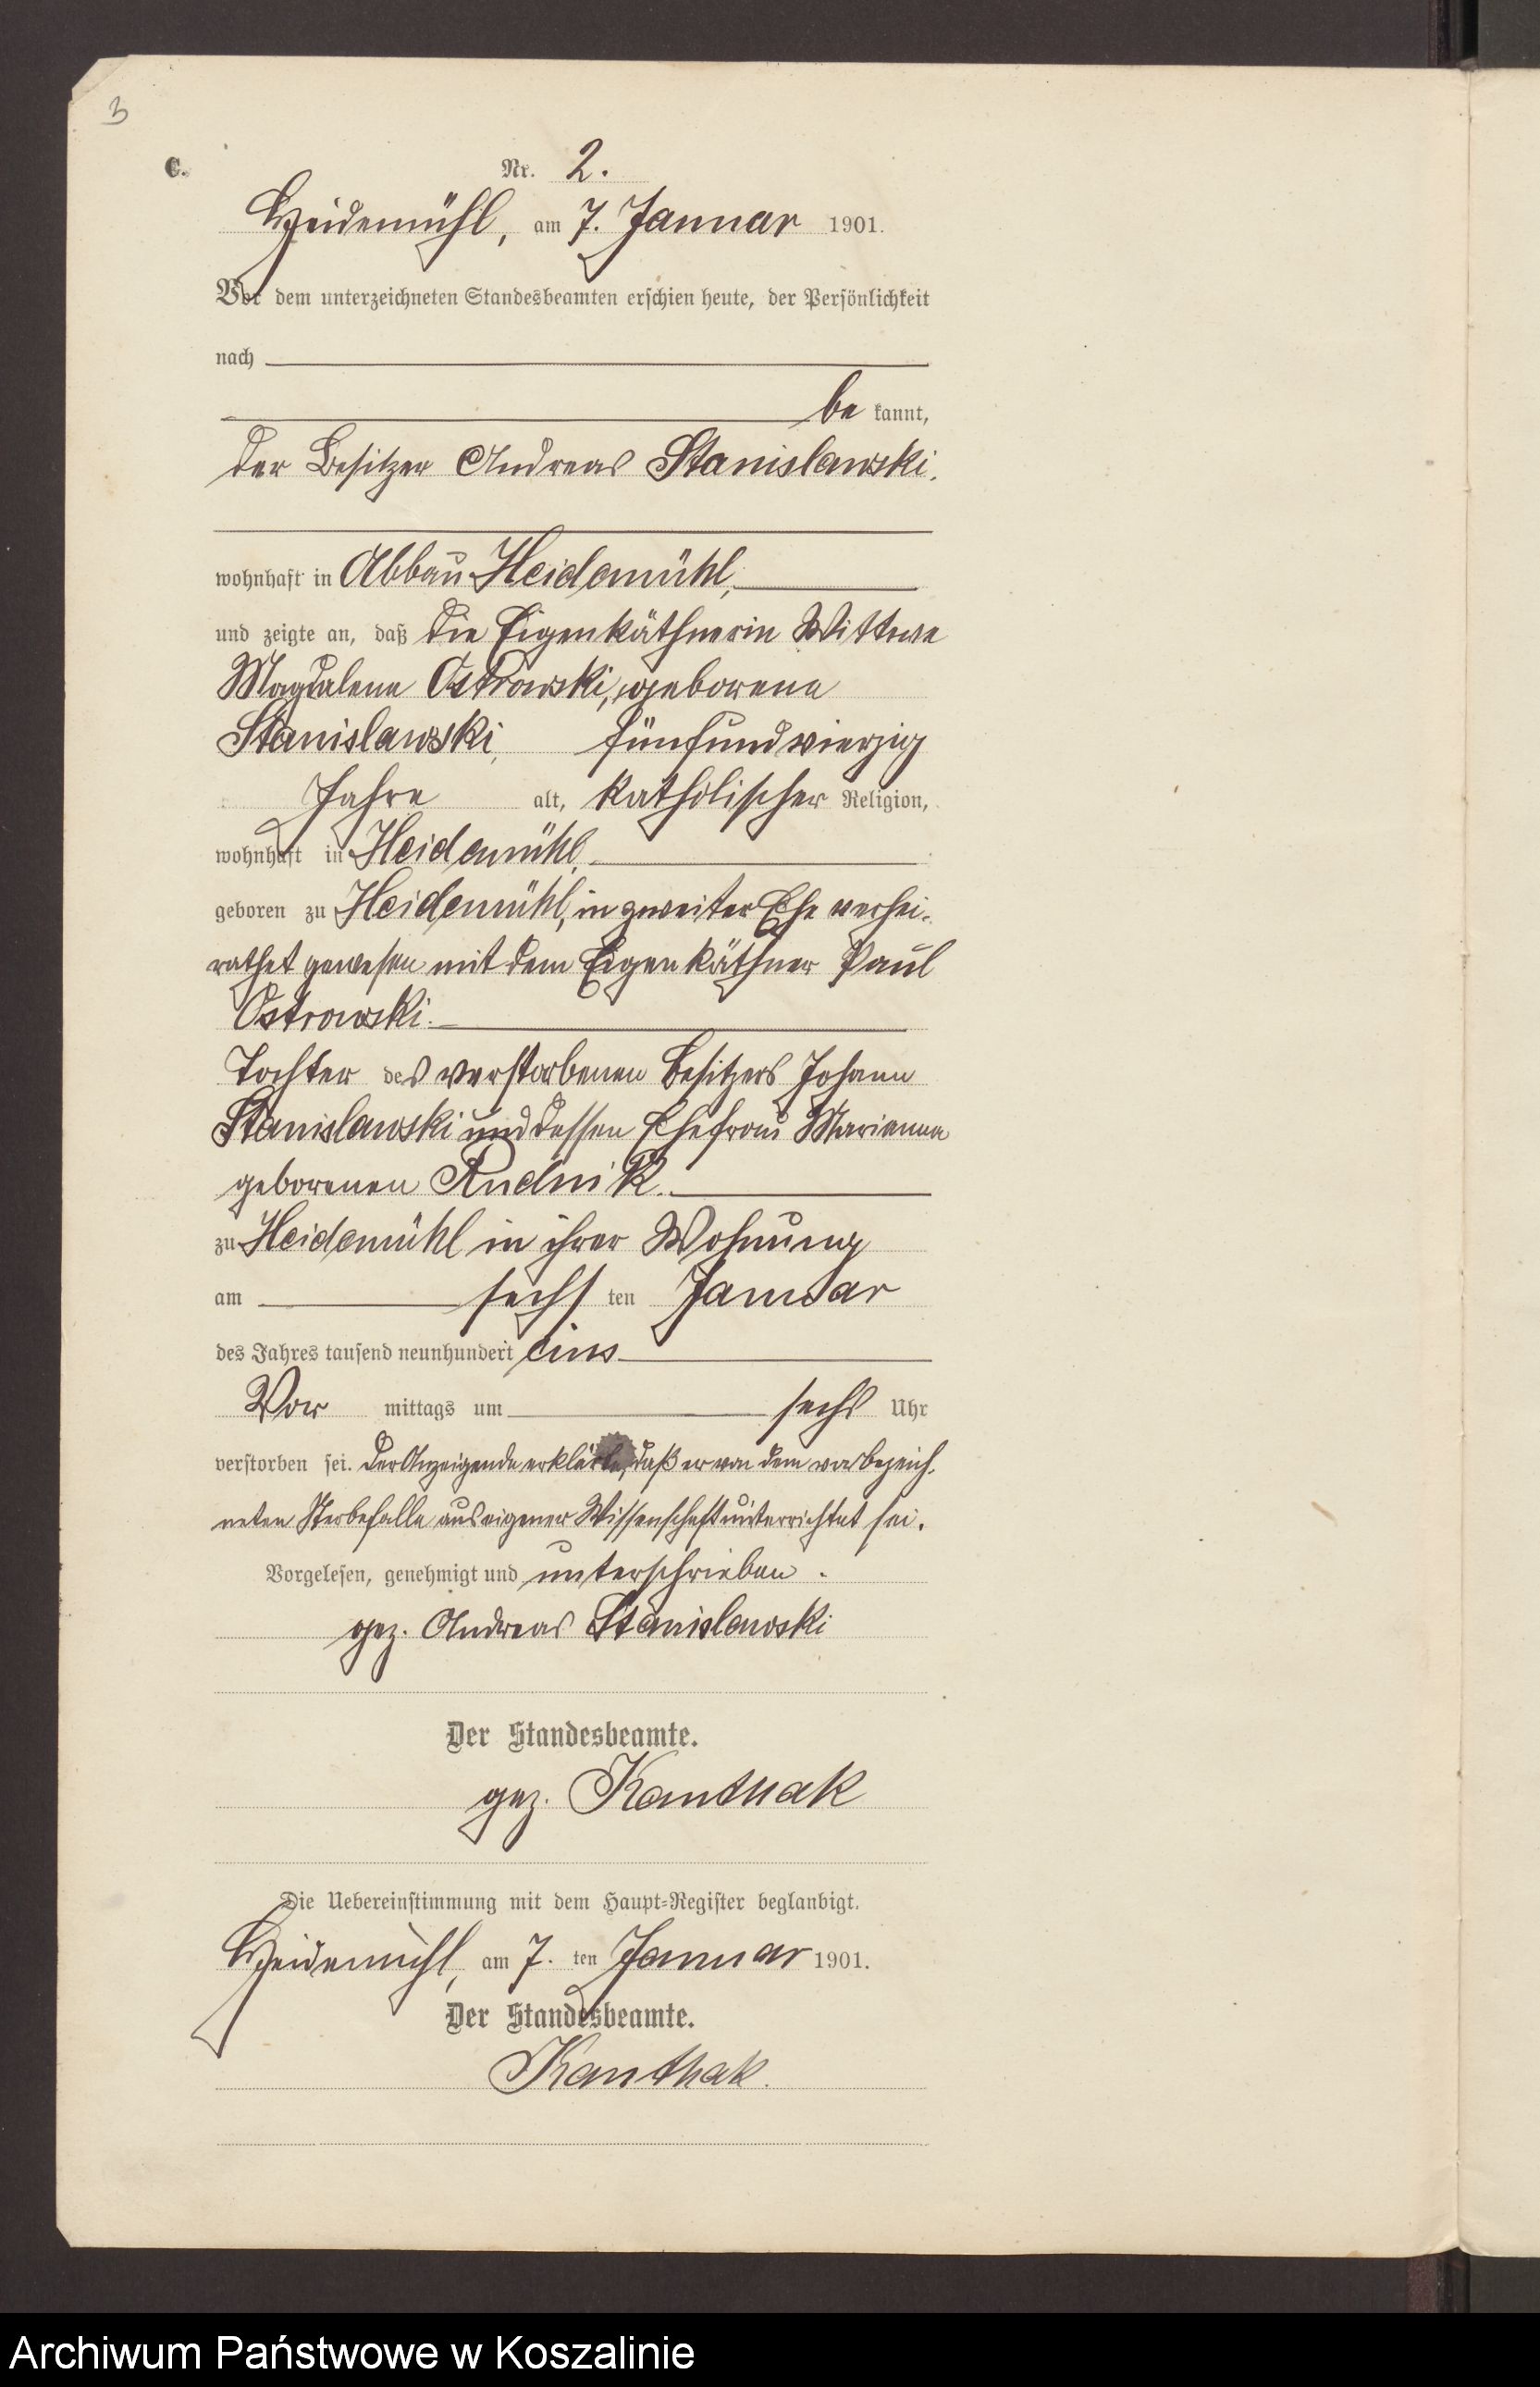 3
C.
Nr. 2.
Heidemühl, am 7. Januar 1901.
Vor dem unterzeichneten Standesbeamten erschien heute, der Persönlichkeit
nach
be kannt,
der Besitzer Andreas Stanislawski,
wohnhaft in Abbau Heidemühl,
und zeigte an, daß die Eigenkäthnerin Wittwe
Magdalena Ostrowski, geborene
Stanislawski, fünfundvierzig
Jahre alt, katholischer Religion,
wohnhaft in Heidemühl,
geboren zu Heidemühl, in zweiter Ehe verhei-
rathet gewesen mit dem Eigenkäthner Paul
Ostrowski.
Tochter des verstorbenen Besitzers Johann
Stanislawski und dessen Ehefrau Marianna
geborenen Rudnik.
zu Heidemühl in ihrer Wohnung
am sechs ten Januar
des Jahres tausend neunhundert eins
Vor mittags um sechs Uhr
verstorben sei. Der Anzeigende erklärte, daß er von dem vorbezeich-
neten Sterbefalle aus eigener Wissenschaft unterrichtet sei.
Vorgelesen, genehmigt und unterschrieben.
gez. Andreas Stanislawski
Der Standesbeamte.
gez. Kanthak
Die Uebereinstimmung mit dem Haupt-Register beglaubigt.
Heidemühl, am 7. ten Januar 1901.
Der Standesbeamte.
Kanthak.
Archiwum Państwowe w Koszalinie